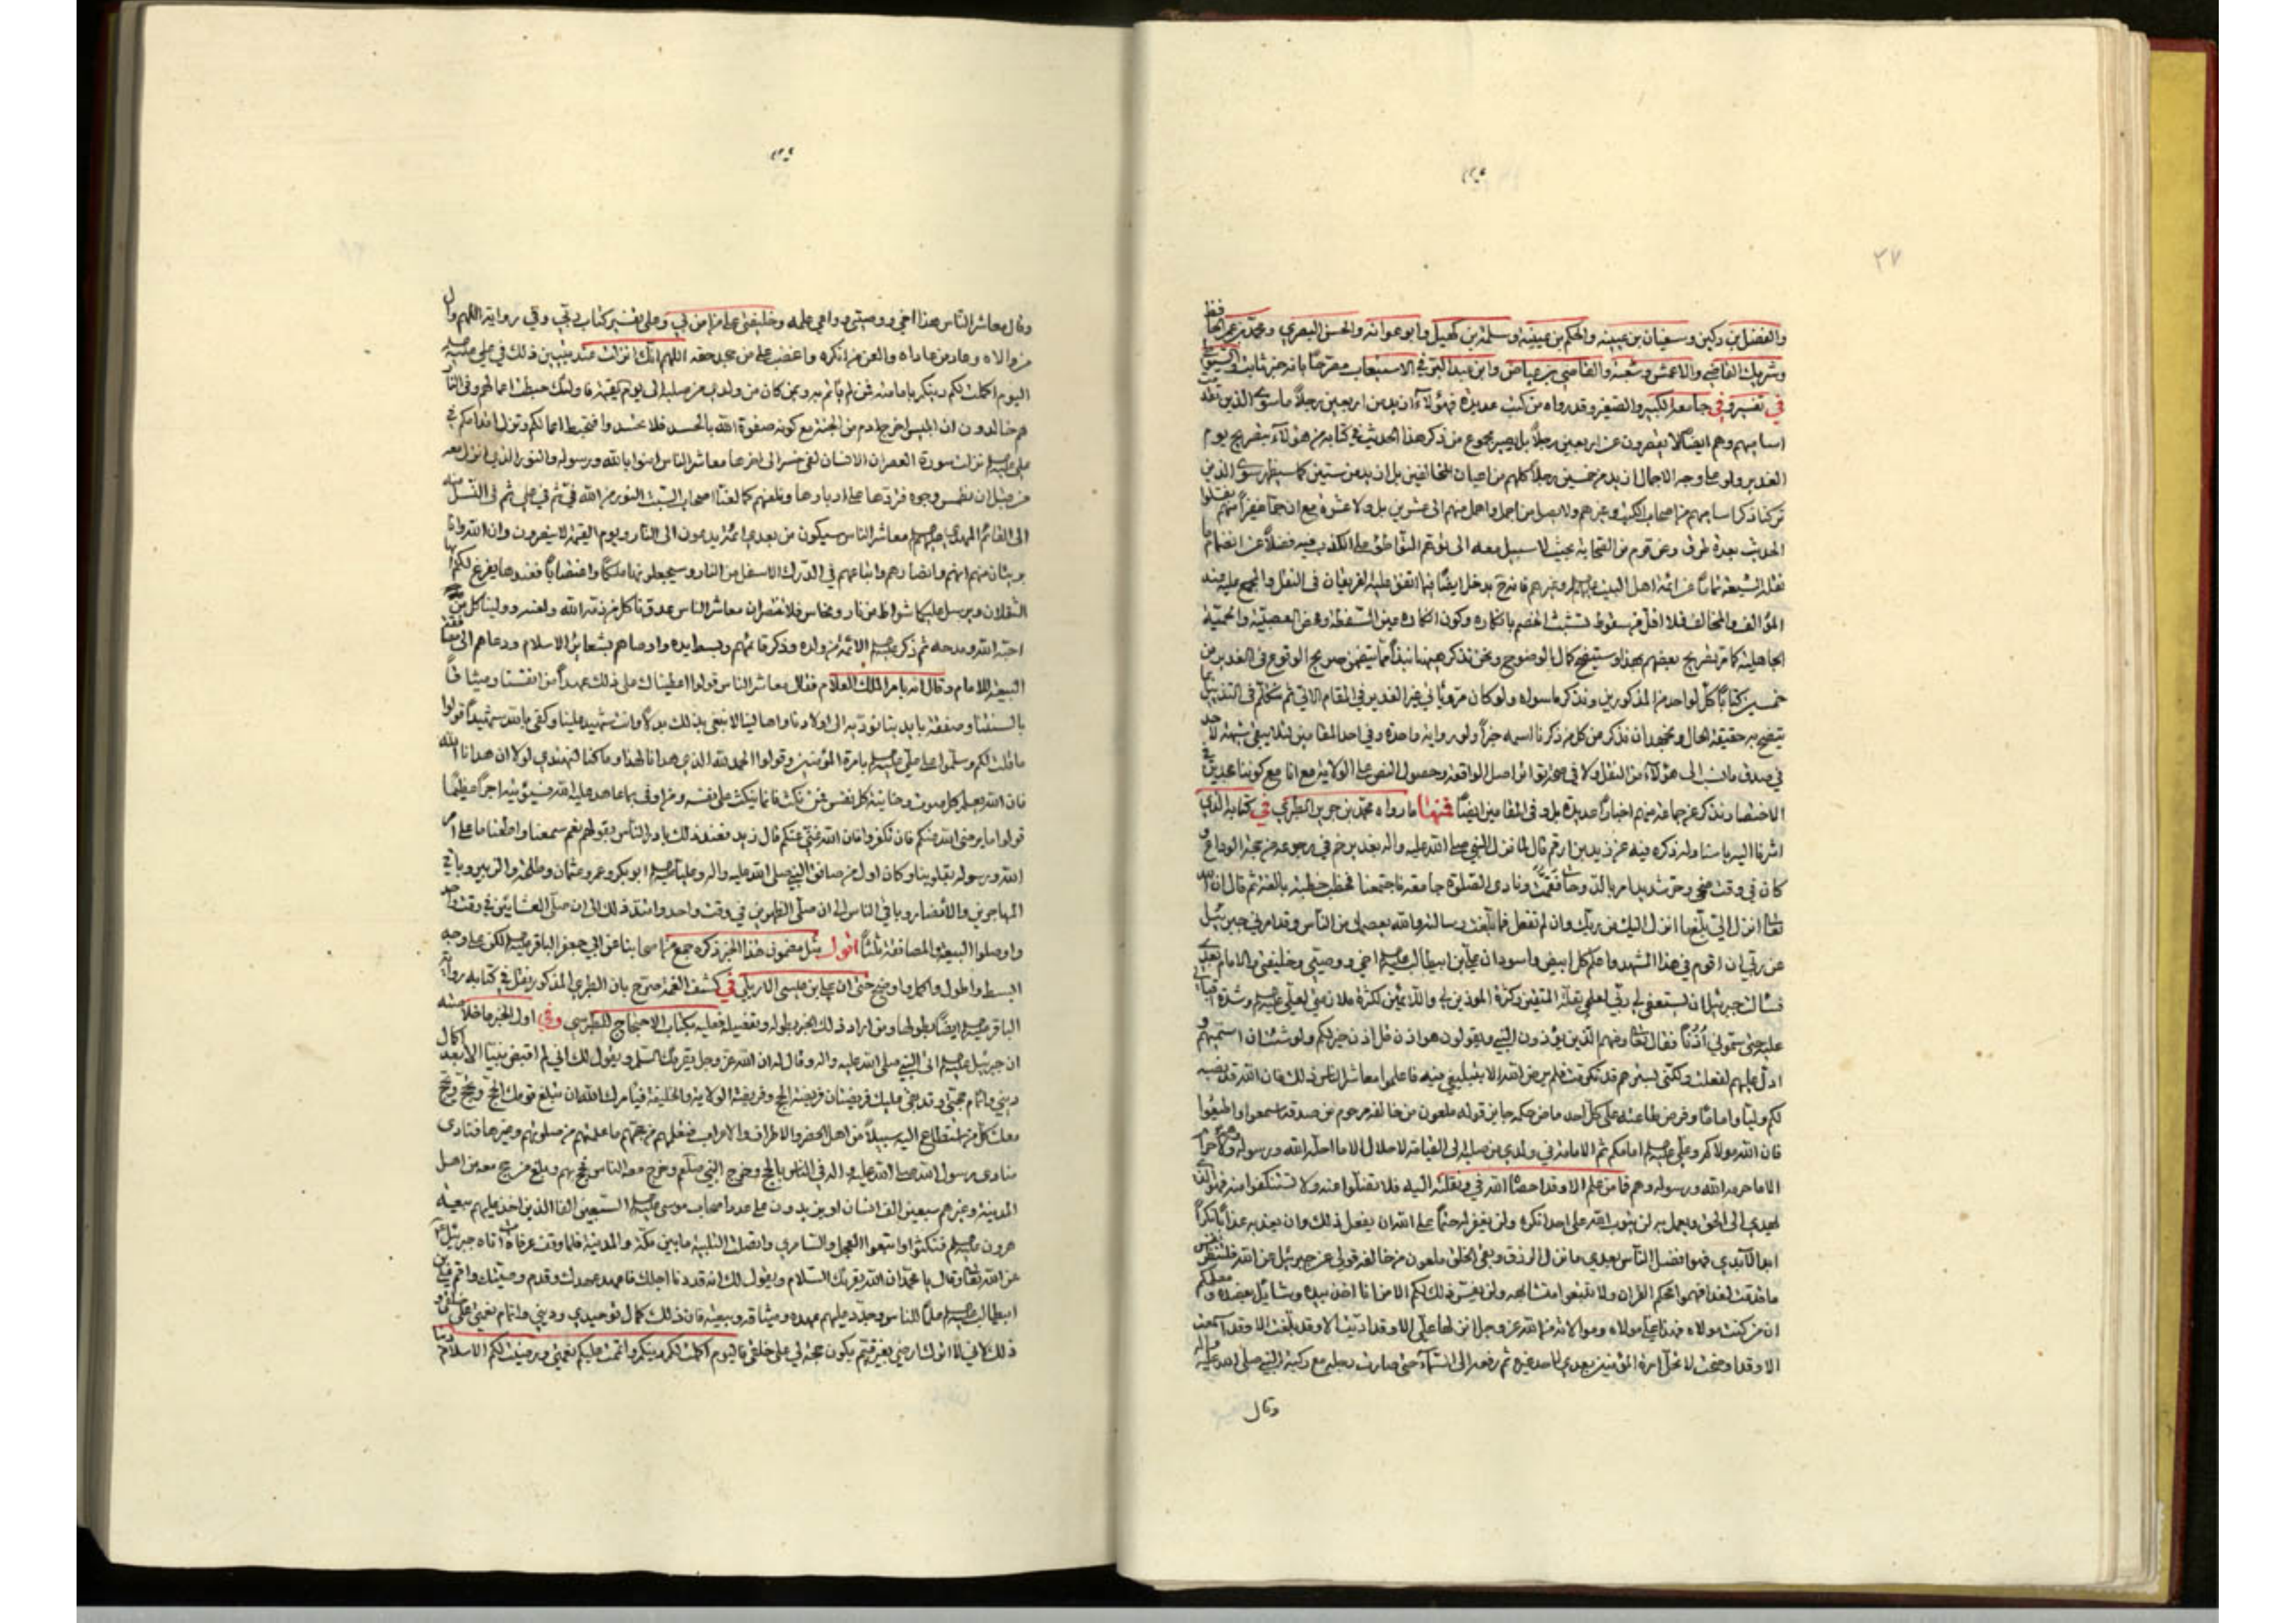 ٢٧
والفضل بن دكين وسفيان بن عيينه والحكم بن عيينه وسلمة بن كهيل وابو عوانه والحسن البصري ومحمد بن عمر الحافظ
وشريك القاضي والاعمش وشعبة والقاضي بن عياض وابن عبد البر في الاستيعاب مصرحًا بانه خبر ثابت والسيوطي
في تفسيره في جامعه الكبير والصغير وقد رواه من كتب عديدة فهؤلاء ازيد من اربعين رجلاً ما سوى الذين
اساميهم وهم ايضًا لا يقصرون عن اربعين رجلاً بل يصير مجموع من ذكر هذا الحديث في كتابه من هؤلاء بتصريح يوم
الغدير ولو على وجه الاجمال ازيد من خمسين رجلاً كلهم من اعيان المخالفين بل ازيد من ستين كما سيظهر سوى الذين
تركنا ذكر اساميهم من اصحاب الكتب وغيرهم
الحديث بعدة طرق وعن قوم من الصحابة بحيث لا سبيل معه الى توهم التواطؤ على الكذب فيه فضلاً عن انضمام ما
نقله الشيعة عن ائمة اهل البيت وغيرهم فانه ح يدخل ايضًا فيما اتفق عليه الفريقان في النقل والمجمع عليه عند
المؤالف والمخالف فلا اقل من سقوط تشبث الخصم بانكاره وكون انكاره عين السفسطة ومحض العصبية والحمية
الجاهلية كما مر تصريح بعضهم بهذا وستيضح كمال الوضوح ونحن نذكر ههنا نبذًا مما يتضمن صريح الوقوع في الغدير من
خمسين كتابًا كل لواحد من المذكورين ونذكر ما سواه ولو كان مرويًا في خبر الغدير في المقام الاتي ثم نتكلم في التذييل بما
يتضح به حقيقة الحال ونجهد ان نذكر من كل من ذكرنا اسمه خبرًا ولو رواية واحدة وفي احد المقامين لئلا يبقى شبهة لاحد
في صدق ما نسب الى هؤلاء من النقل ولا في صحة تواتر اصل الواقعة وحصول النص على الولاية مع انا مع كوننا عند
الاختصار نذكر عن جماعة منهم اخبارًا عديدة بل وفي المقامين ايضًا فمنها ما رواه محمد بن جرير الطبري في كتابه الذي
اشرنا اليه باسناده ذكره فيه عن زيد بن ارقم قال لما نزل النبي صلى الله عليه واله بغدير خم في رجوعه من حجة الوداع و
كان في وقت ضحى وحر شديد امر بالدوحات فقمت ونادى الصلوة جامعة فاجتمعنا فخطب خطبة بالغة ثم قال ان الله
تعالى انزل الي بلغ ما انزل اليك من ربك وان لم تفعل فما بلغت رسالته والله يعصمك من الناس وقد امرني جبرئيل
عن ربي ان اقوم في هذا المشهد واعلم كل ابيض واسود ان علي بن ابيطالب اخي ووصيي وخليفتي والامام بعدي
فسألت جبرئيل ان يستعفي لي ربي لعلمي بقلة المتقين وكثرة الموذين لي واللائمين لكثرة ملازمتي لعلي وشدة اقبالي
عليه حتى سموني أذنًا فقال تعالى ومنهم الذين يؤذون النبي ويقولون هو اذن قل اذن خير لكم ولو شئت ان اسميهم و
ادل عليهم لفعلت ولكني بسترهم قد تكرمت فلم يرض الله الا بتبليغي فيه فاعلموا معاشر الناس ذلك فان الله قد نصبه
لكم وليًا وامامًا وفرض طاعته على كل احد ماض حكمه جايز قوله ملعون من خالفه مرحوم من صدقه اسمعوا واطيعوا
فان الله مولاكم وعلي امامكم ثم الامامة في ولدي من صلبه الى القيامة لا حلال الا ما احله الله ورسوله ولا حرام
الا ما حرمه الله ورسوله وهم فما من علم الا وقد احصاه الله في ونقلته اليه فلا تضلوا عنه ولا تستنكفوا منه فهو الذي
يهدي الى الحق ويعمل به لن يتوب الله على احد انكره ولن يغفر له حتمًا على الله ان يفعل ذلك وان يعذبه عذابًا نكرًا
ابد الآبدين فهو افضل الناس بعدي ما نزل الرزق وبقي الخلق ملعون من خالفه قولي عن جبرئيل عن الله فلتنظر نفس
ما قدمت لغد افهموا محكم القران ولا تتبعوا متشابهه ولن يفسر ذلك لكم الا من انا اخذ بيده وشائل بعضده ومعلمكم
ان من كنت مولاه فهذا علي مولاه وموالاته من الله عز وجل انزلها علي الا وقد اديت الا وقد بلغت الا وقد اسمعت
الا وقد اوضحت لا تحل امرة المؤمنين بعدي لاحد غيره ثم رفعه الى السماء حتى صارت رجله مع ركبة النبي صلى الله عليه واله
وقال
وقال معاشر الناس هذا اخي ووصيي وواعي علمه وخليفتي على من امن بي وعلى تفسير كتاب ربي وفي رواية اللهم وال
من والاه وعاد من عاداه والعن من انكره واغضب على من جحد حقه اللهم انك انزلت عند تبيين ذلك في علي
اليوم اكملت لكم دينكم بامامته فمن لم يأتم به وبمن كان من ولدي من صلبه الى يوم القيمة فاولئك حبطت اعمالهم وفي النار
هم خالدون ان ابليس اخرج ادم من الجنة مع كونه صفوة الله بالحسد فلا تحسدوا فتحبط اعمالكم وتزل اقدامكم في
علي نزلت سورة العصر ان الانسان لفي خسر الى اخرها معاشر الناس امنوا بالله ورسوله والنور الذي انزل معه
من قبل ان نطمس وجوها فنردها على ادبارها او نلعنهم كما لعنا اصحاب السبت النور من الله في ثم في علي ثم في النسل منه
الى القائم المهدي معاشر الناس سيكون من بعدي ائمة يدعون الى النار ويوم القيمة لا ينصرون وان الله وانا
بريئان منهم انهم وانصارهم واتباعهم في الدرك الاسفل من النار وسيجعلونها ملكًا واغتصابًا فعندها يفرغ لكم ايها
الثقلان ويرسل عليكما شواظ من نار ونحاس فلا تنتصران معاشر الناس عدونا كل من ذمه الله ولعنه وولينا كل من
احبه الله ومدحه ثم ذكر الائمة من ولده وذكر قائمهم وبسط يده واوصاهم بشعائر الاسلام ودعاهم الى
البيعة للامام وقال انه بامر الملك العلام فقال معاشر الناس قولوا اعطيناك على ذلك عهدًا من انفسنا وميثاقًا
بالسنتنا وصفقة بايدينا نؤديه الى اولادنا واهالينا لا نبتغي بذلك بدلاً وانت شهيد علينا وكفى بالله شهيدًا قولوا
ما قلت لكم وسلموا على علي بامرة المؤمنين وقولوا الحمد لله الذي هدانا لهذا وما كنا لنهتدي لولا ان هدانا الله
فان الله يعلم كل صوت وخائنة كل نفس فمن نكث فانما ينكث على نفسه ومن اوفى بما عاهد عليه الله فسيؤتيه اجرًا عظيمًا
قولوا ما يرضي الله عنكم فان تكفروا فان الله غني عنكم قال زيد فعند ذلك بادر الناس بقولهم نعم سمعنا واطعنا ما على امر
الله ورسوله بقلوبنا وكان اول من صافق النبي صلى الله عليه واله وعليًا ابو بكر وعمر وعثمان وطلحة والزبير وباقي
المهاجرين والانصار وباقي الناس الى ان صلى الظهرين في وقت واحد وامتد ذلك الى ان صلى العشائين في وقت واحد
واوصلوا البيعة والمصافقة ثلثًا اقول مثل مضمون هذا الخبر ذكره جمع من اصحابنا عن ابي جعفر الباقر لكن على وجه
ابسط واطول واكمل واوضح حتى ان علي بن عيسى الاربلي في كشف الغمة صرح بان الطبري المذكور نقل في كتابه رواية
الباقر ايضًا بطولها ومن اراد ذلك الخبر بطوله وتفصيله فعليه بكتاب الاحتجاج للطبرسي وفي اول الخبر ما خلاصته
ان جبرئيل اتى النبي صلى الله عليه واله وقال له ان الله عز وجل يقريك السلم ويقول لك اني لم اقبض نبيًا الا بعد اكمال
ديني واتمام حجتي وقد بقي عليك فريضتان فريضة الحج وفريضة الولاية والخليفة فيأمرك الله ان تبلغ قومك الحج وتحج ويحج
معك كل من استطاع اليه سبيلاً من اهل الحضر والاطراف والاعراب فتعلمهم من حجهم ما علمتهم من صلوتهم وغيرها فنادى
منادي رسول الله صلى الله عليه واله في الناس بالحج وخرج النبي صلعم وخرج معه الناس فحج بهم وبلغ من حج معه من اهل
المدينة وغيرهم سبعين الف انسان او يزيدون على عدد اصحاب موسى السبعين الفا الذين اخذ عليهم بيعة
هرون فنكثوا واتبعوا العجل والسامري واتصلت التلبية ما بين مكة والمدينة فلما وقف بعرفات اتاه جبرئيل
عن الله تعالى وقال يا محمد ان الله يقريك السلام ويقول لك انه قد دنا اجلك فاعهد عهدك وقدم وصيتك واقم علي بن
ابيطالب علمًا للناس وجدد عليهم عهده وميثاقه وبيعته فان ذلك كمال توحيدي وديني واتمام نعمتي على خلقي و
ذلك اني لا اترك ارضي بغير قيم يكون حجة لي على خلقي فاليوم اكملت لكم دينكم واتممت عليكم نعمتي ورضيت لكم الاسلام دينا